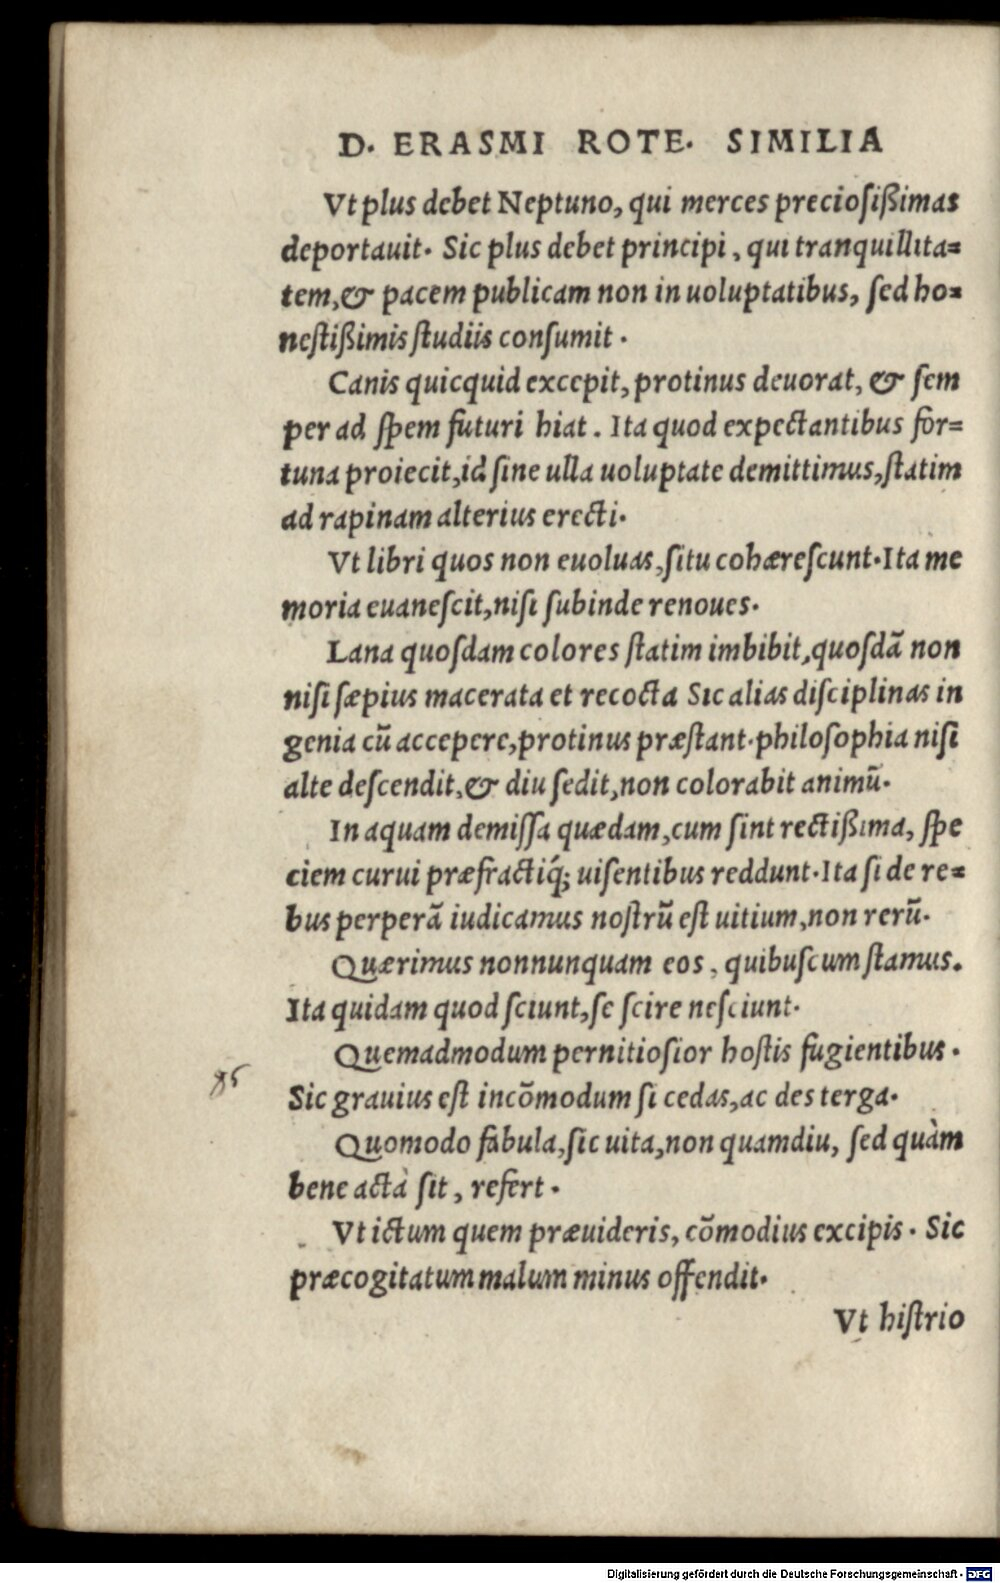 D. ERASMI ROTE. SIMILIA
Vt plus debet Neptuno, qui merces preciosißimas
deportauit. Sic plus debet principi, qui tranquillita=
tem,& pacem publicam non in uoluptatibus, sed ho=
nestißimis studiis consumit.
Canis quicquid excepit, protinus deuorat, & sem
per ad spem futuri hiat. Ita quod expectantibus for=
tuna proiecit,id sine ulla uoluptate demittimus,statim
ad rapinam alterius erecti.
Vt libri quos non euoluas,situ cohærescunt.Ita me
moria euanescit,nisi subinde renoues.
Lana quosdam colores statim imbibit,quosdã non
nisi sæpius macerata et recocta Sic alias disciplinas in
genia cũ accepere,protinus præstant.philosophia nisi
alte descendit,& diu sedit,non colorabit animũ.
In aquam demissa quædam,cum sint rectißima, spe
ciem curui præfractiq́; uisentibus reddunt.Ita si de re=
bus perperã iudicamus nostrũ est uitium,non rerũ.
Quærimus nonnunquam eos, quibuscum stamus.
Ita quidam quod sciunt,se scire nesciunt.
Quemadmodum pernitiosior hostis fugientibus.
85
Sic grauius est incõmodum si cedas,ac des terga.
Quomodo fabula,sic uita,non quamdiu, sed quàm
bene acta sit, refert.
Vt ictum quem præuideris, cõmodius excipis. Sic
præcogitatum malum minus offendit.
Vt histrio
Digitalisierung gefördert durch die Deutsche Forschungsgemeinschaft - DFG